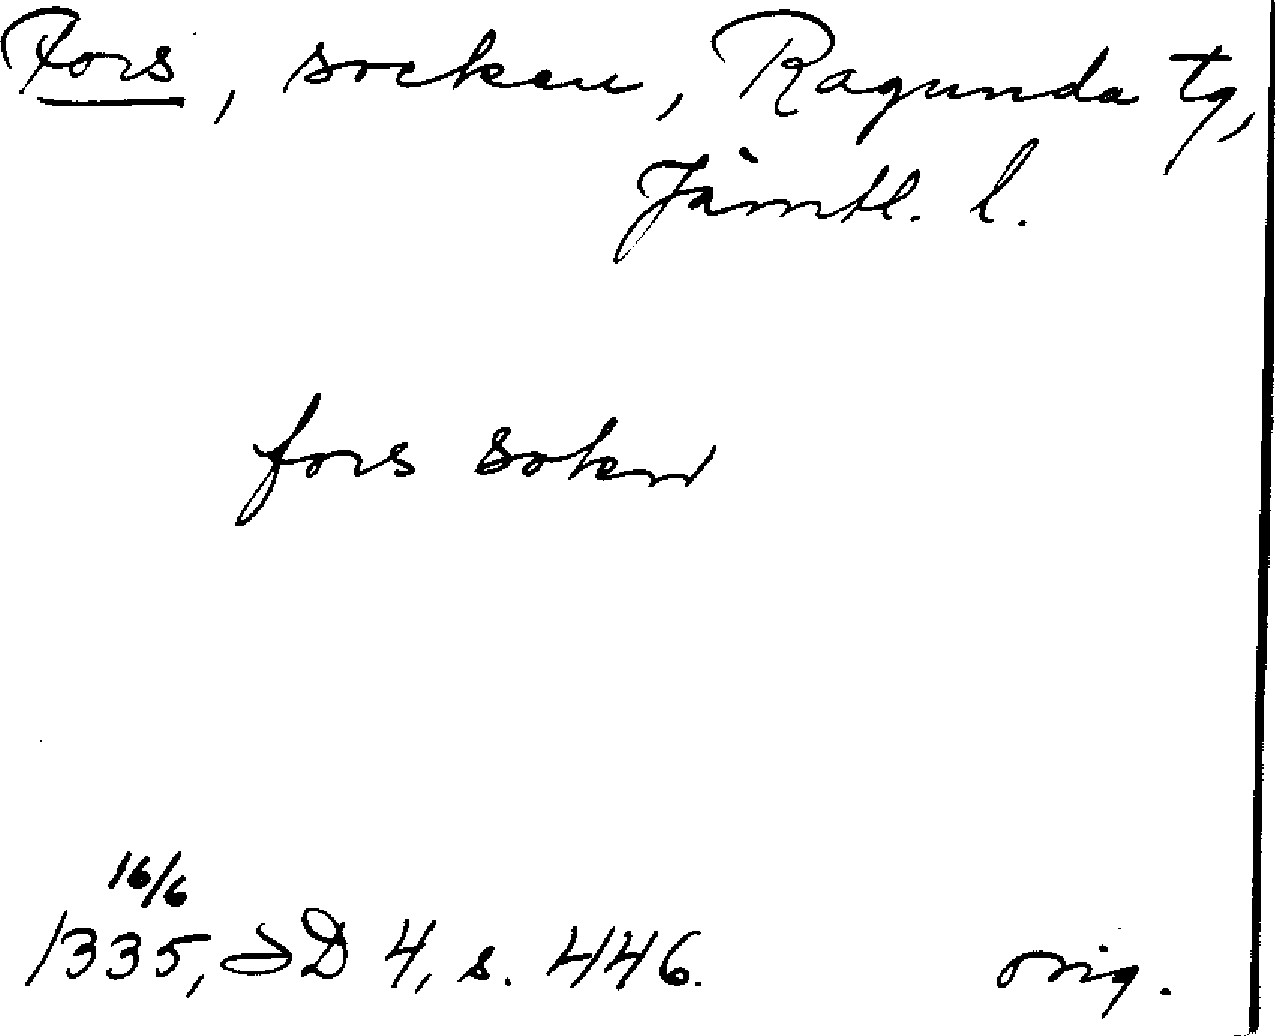 Fors, socken, Ragunda tg,
Jämtl. l.
fors sokn
16/6
1335, SD 4, s. 446.
orig.